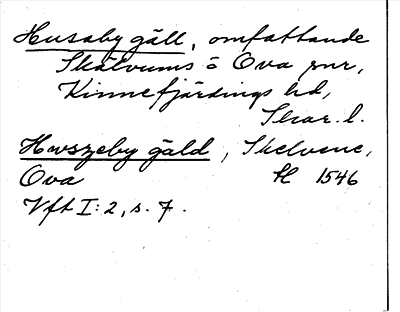 Husaby gäll, omfattande
Skälvums o Ova snr,
Kinnefjärdings hd,
Skar. l.
Hwszeby gäld, Skelvene,
Ova H 1546
Vft I:2, s. 7.